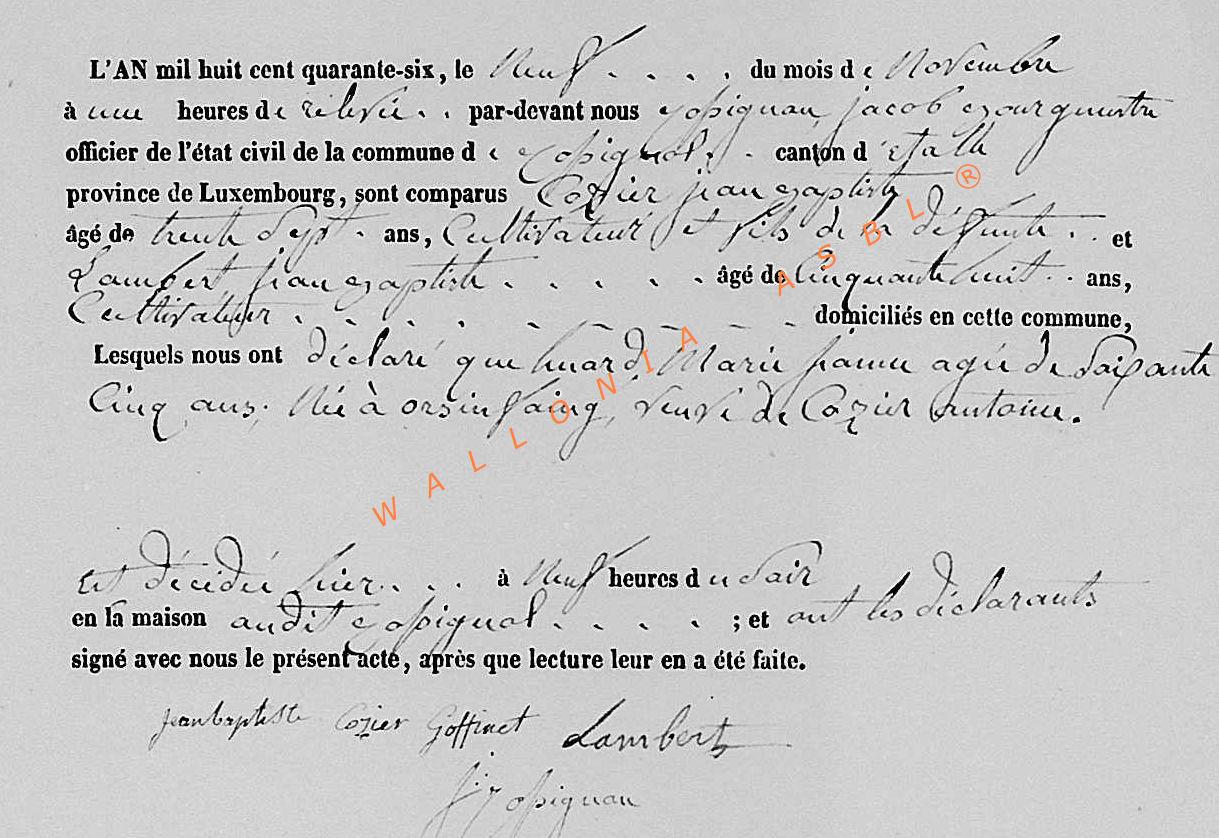 L'AN mil huit cent quarante-six, le Neuf . . . . du mois de Novembre
à une heures de rélevée . . par-devant nous jacob Bourguemestre
officier de l'état civil de la commune de . . canton d'étalle
province de Luxembourg, sont comparus Cozier jean Baptiste
âgé de trente Sept . ans, Cultivateur et fils de la défunte . . et
Lambert jean Baptiste . . . . . âgé de Cinquante huit . . ans,
Cultivateur . . . . . . . . . domiciliés en cette commune,
Lesquels nous ont déclaré que huard Marie jeanne agée de Soixante
Cinq ans, Née à orsinfaing, veuve de Cozier antoine.
Est décédée hier . . . à Neuf heures du Soir
en la maison audit . . . . ; et ont les déclarants
signé avec nous le présent acte, après que lecture leur en a été faite.
jeanbaptiste Cozier Goffinet Lambert
WALLONIA ASBL ®